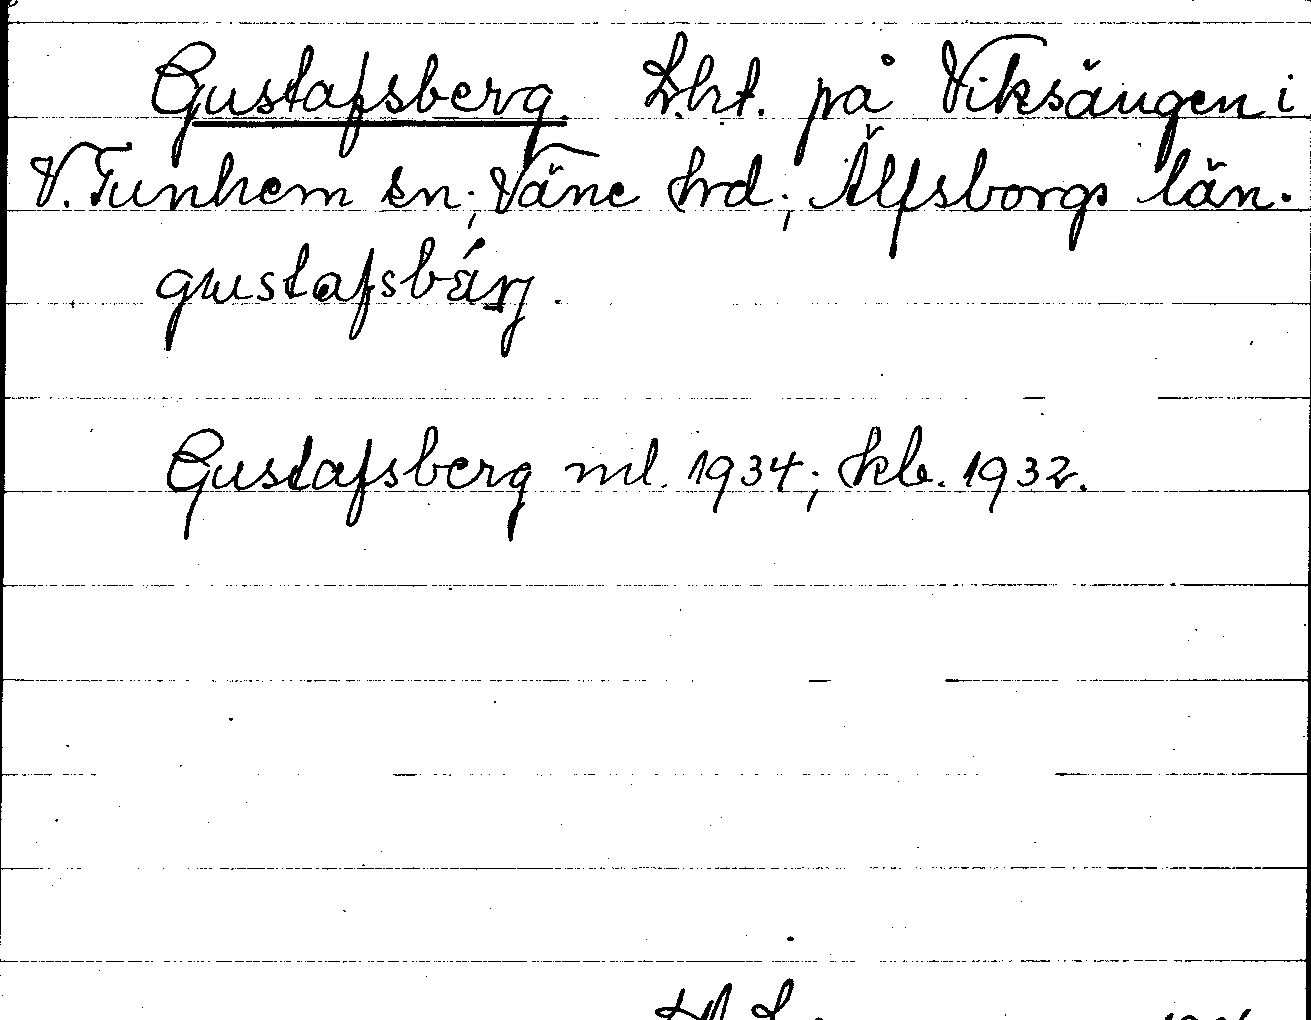 Gustafsberg. Lht. på Viksängen i
V. Tunhem sn; Väne hrd; Älfsborgs län.
gustafsbärj.
Gustafsberg ml. 1934; kb. 1932.